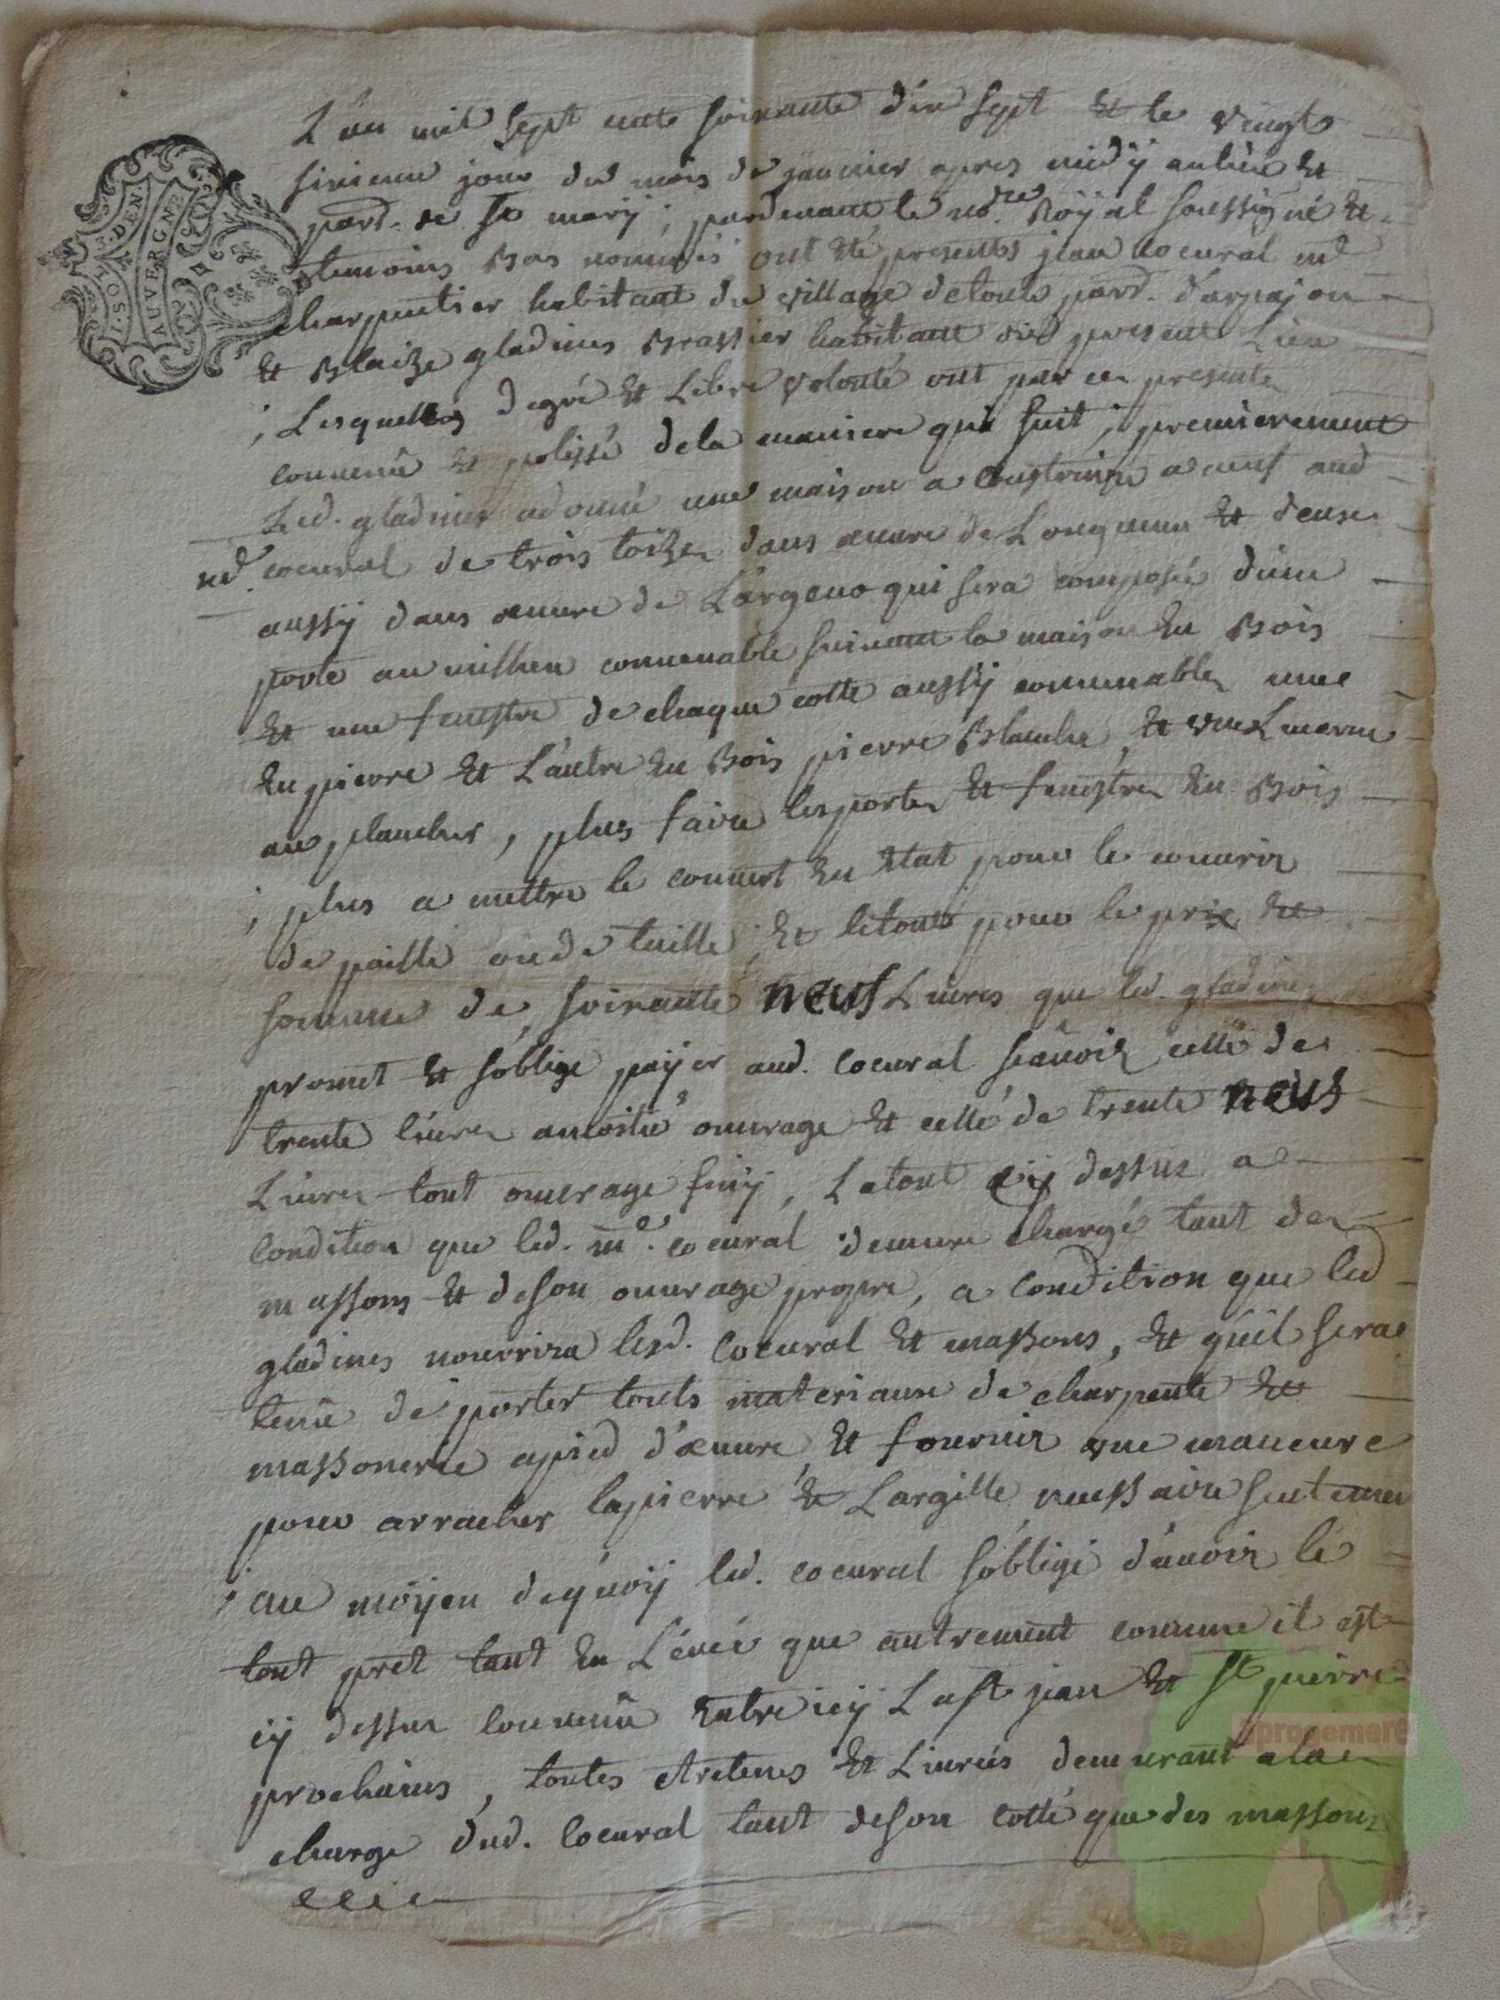 L'an mil sept cent soixante dix sept et le vingt
sixieme jour du mois de janvier apres midy au lieu et
parr. de st mary; pardevant le nore Royal soussigné et
temoins Bas nommés ont été presents jean Cocural me
charpentier habitant du village de toule parr. d'arpajon
et Blaize gladines Brassier habitant du present Lieu
; Lesquelles de gré et Libre volonté ont par ces presente
convenu et polissé de la maniere qui suit; premierement
Led. gladines a donné une maison a Construire a neuf aud
me. cocural de trois toizes dans œuvre de Longueur et deuse
aussy dans œuvre de Largeur qui sera composée d'une
porte au millieu convenable suivant la maison en Bois
et une fenestre de chaque cotte aussy convenables une
en pierre et L'autre en Bois pierre Blanche, et une Lucarne
au plancher, plus faire les portes et fenestres en Bois
; plus a mettre le couvert en état pour le couvrir
de paille ou de tuille, et le tout pour le prix et
somme de soixante neuf Livres que led. gladines
promet et s'oblige payer aud. Cocural sçavoir celle de
trente livres a moitié ouvrage et celle de trente neuf
Livres tout ouvrage finy, Le tout cy dessus a
Condition que led. me. cocural demure chargé tant des
massons et de son ouvrage propre, a condition que led
gladines nourrira lesd. Cocural et massons, et qu'il sera
tenu de porter touts materiaux de charpente et
massonerie a pied d'œuvre, et fournir une maneuvre
pour arracher la pierre et L'argille nessaire seulement
; au moyen de quoy led. cocural s'oblige d'avoir le
tout pret tant en Levée que autrement comme il est
cy dessus convenu entre icy La st jean et st pierre
prochains, toutes etretenes et Livrées demurant a la
charge dud. Cocural tant de son cotté que des massons
I·SOL·3·DEN
AUVERGNE
aprogemere